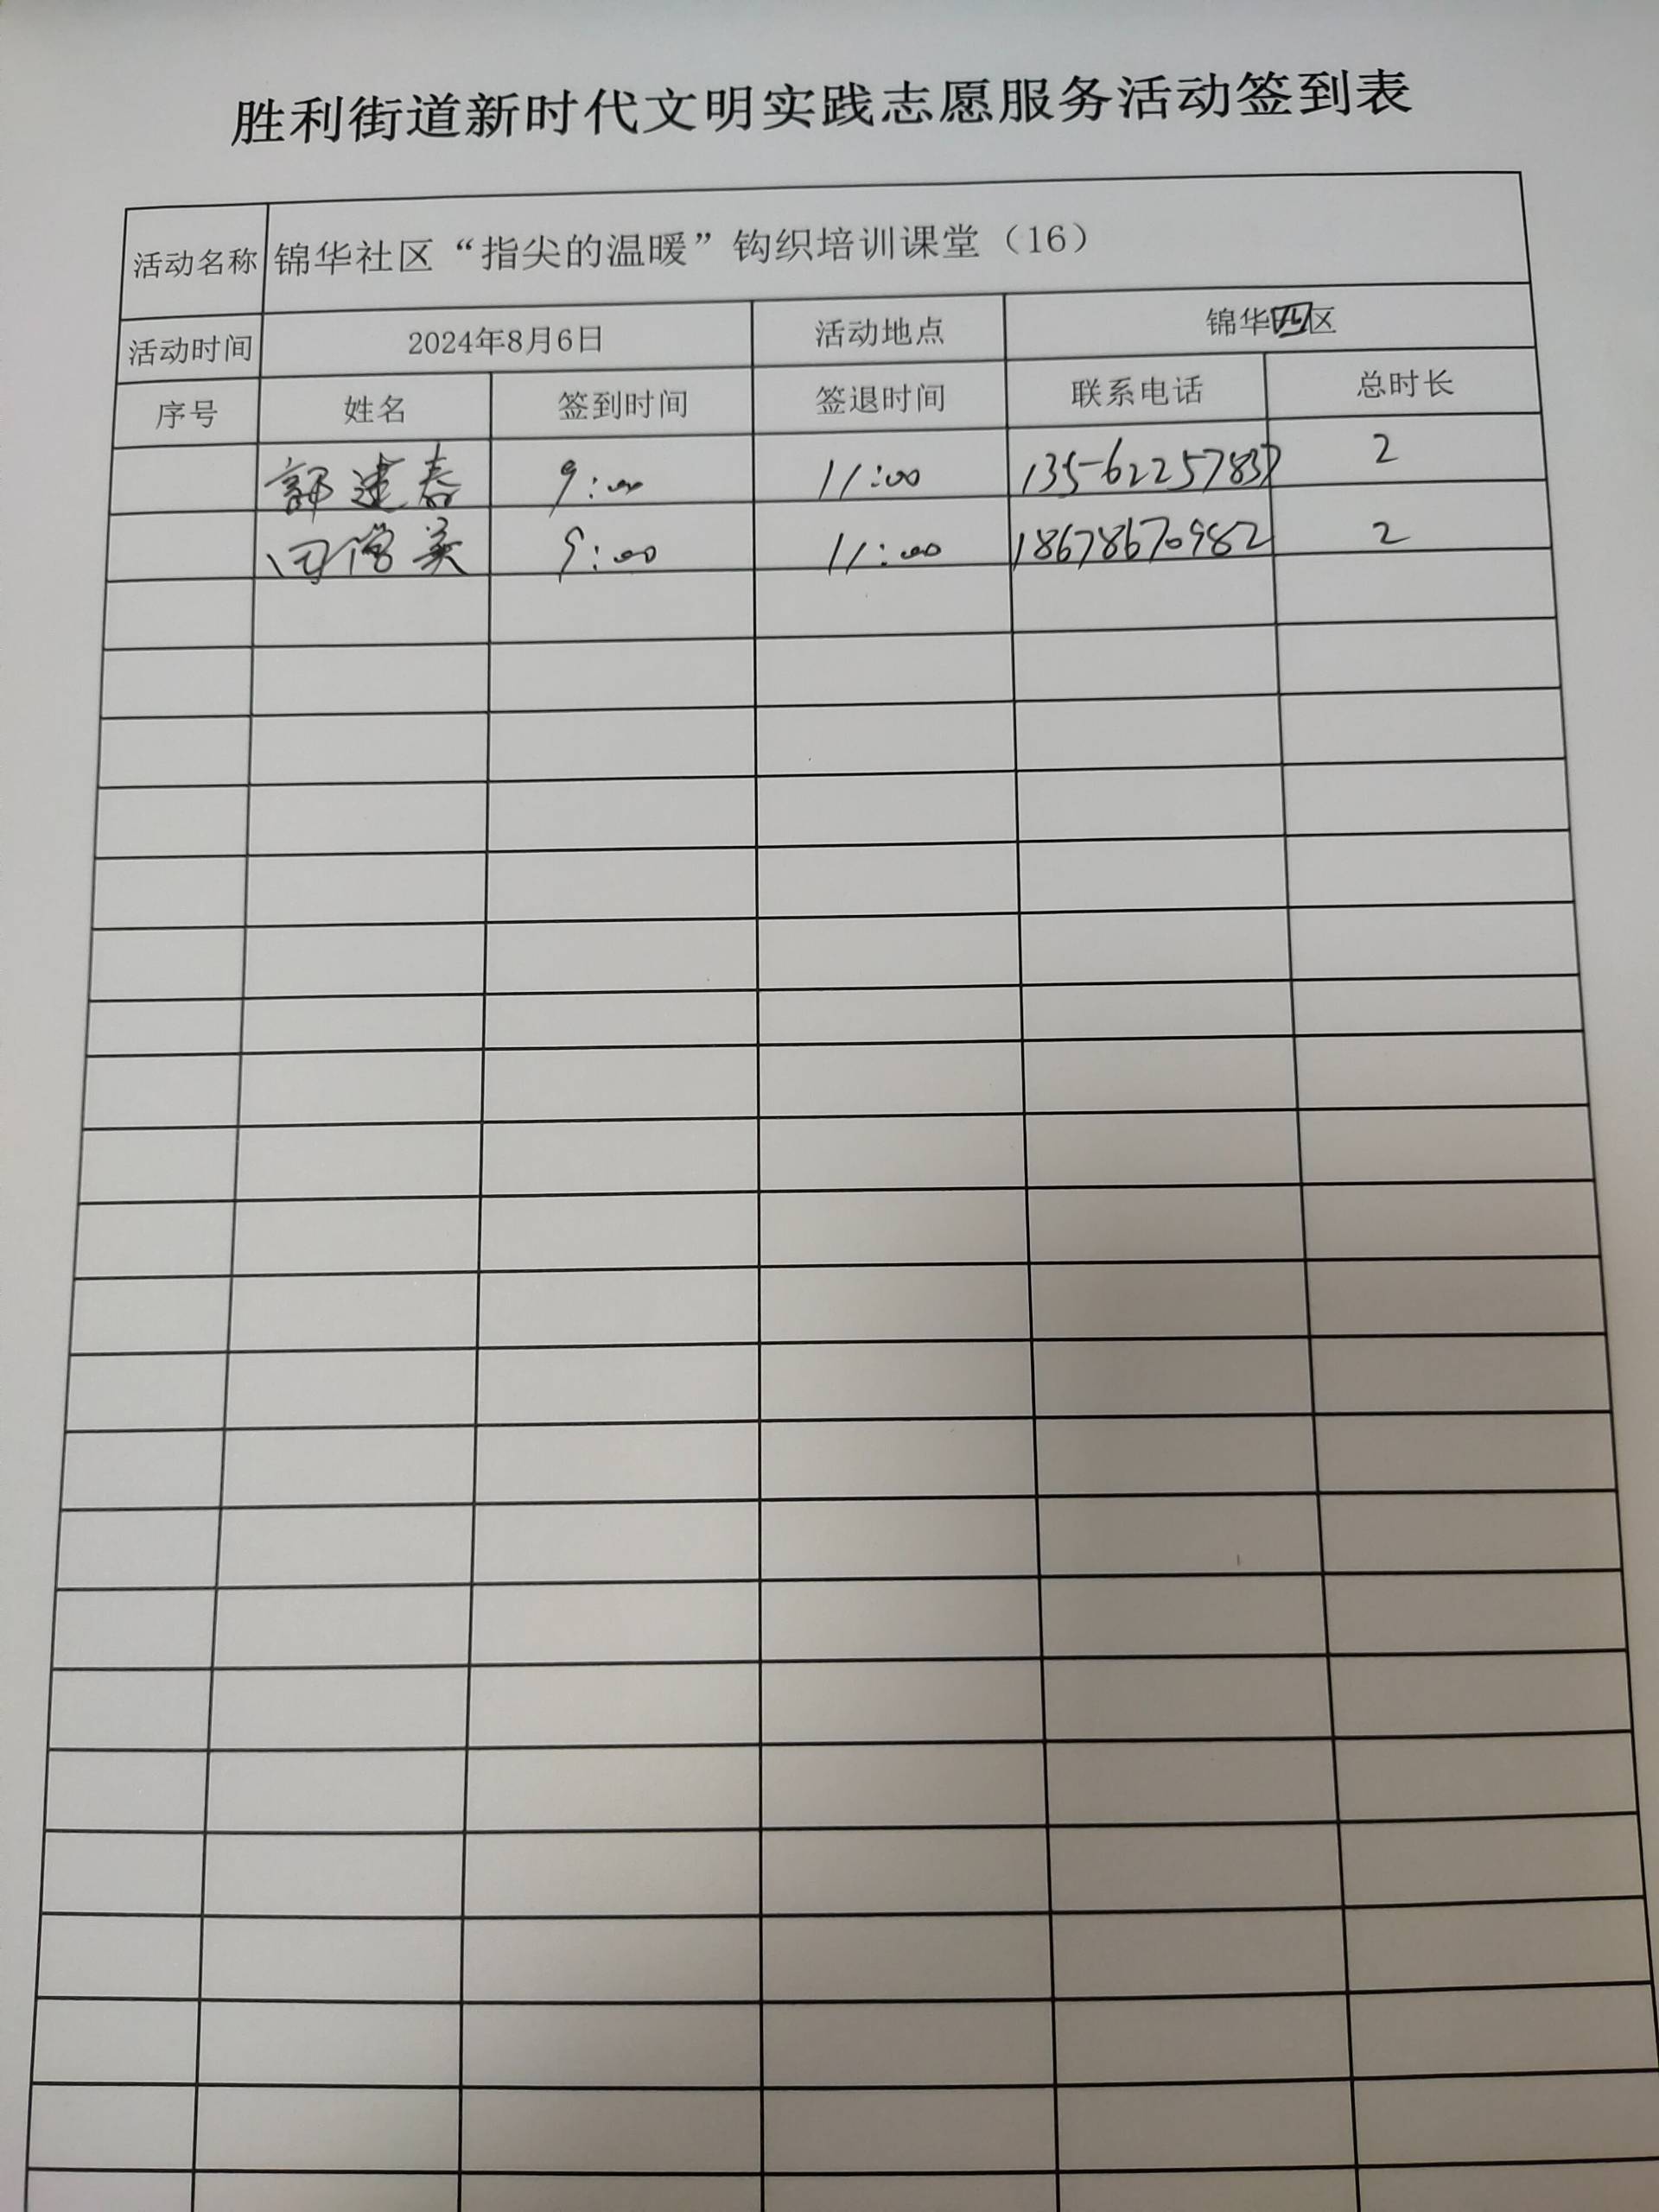 胜利街道新时代文明实践志愿服务活动签到表
活动名称 锦华社区“指尖的温暖”钩织培训课堂（16）
活动时间 2024年8月6日 活动地点 锦华四区
序号 姓名 签到时间 签退时间 联系电话 总时长
建春 9:00 11:00 13562257837 2
田学美 9:00 11:00 18678670982 2